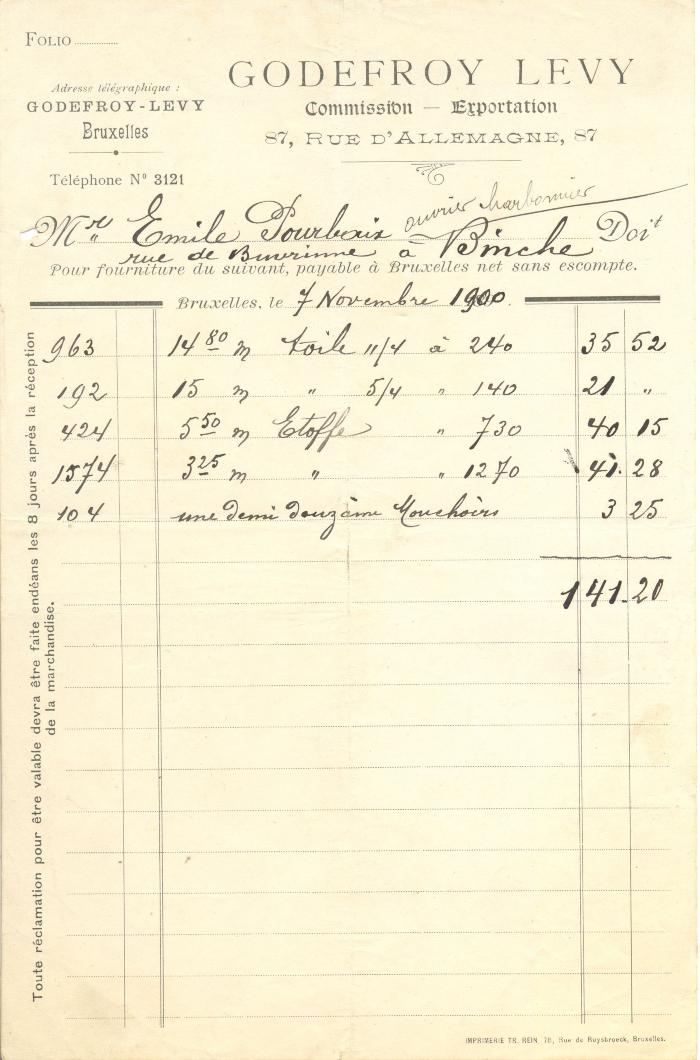 FOLIO
Adresse télégraphique :
GODEFROY-LEVY
Bruxelles
Téléphone N° 3121
GODEFROY LEVY
Commission — Exportation
87, RUE D'ALLEMAGNE, 87
ouvrier charbonnier
Mr Emile Pourbaix à Binche Doit
rue de Buvrinne
Pour fourniture du suivant, payable à Bruxelles net sans escompte.
Bruxelles, le 7 Novembre 1900.
963 14 80 m toile 11/4 à 240 35 52
192 15 m " 5/4 " 140 21 "
424 5 50 m Etoffe " 730 40 15
1574 3 25 m " " 1270 41. 28
104 une demi douzaine Mouchoirs 3 25
141.20
Toute réclamation pour être valable devra être faite endéans les 8 jours après la réception
de la marchandise.
IMPRIMERIE TR. REIN, 78, Rue de Ruysbroeck, Bruxelles.